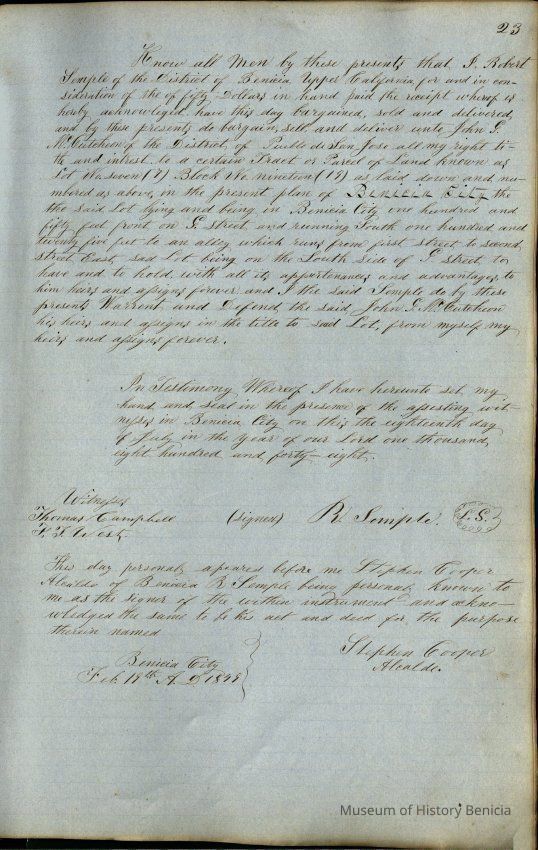 23
Know all Men by these presents that I, Robert
Semple of the District of Benicia Upper California, for and in con-
sideration of the of fifty Dollars in hand paid the receipt whereof is
hereby acknowleged have this day bargained, sold and delivered,
and by these presents do bargain, sell and deliver unto John G.
McCutcheon of the District of Pueblo de San Jose all my right ti-
tle and intrest to a certain Tract or Parcel of Land known as
Lot No seven (7) Block No nineteen (19) as laid down and nu-
mbered as above, in the present plan of Benicia City the
the said Lot lying and being in Benicia City one hundred and
fifty feet front on G street, and running South one hundred and
twenty five feet to an alley which runs from first street to second
street East, sad Lot being on the South side of G street, to
have and to hold with all its appertenances and advantages, to
him heirs and assigns forever and I the said Semple do by these
presents Warrent and Defend the said, John G. McCutcheon
his heirs and assigns in the title to said Lot, from myself my
heirs and assigns forever.
In Testimony Whereof I have hereunto set my
hand and seal in the presence of the assesting wit-
nesses in Benicia City on this the eighteenth day
of July in the year of our Lord one thousand
eight hundred and forty-eight.
Witness
Thomas Campbell (signed) R. Semple. L.S.
West
This day personaly apeared before me Stephen Cooper
Alcaldo of Benicia R Semple being personaly known to
me as the signor of the within instrument and ackno-
wledged the same to be his act and deed for the purpose
therein named
Stephen Cooper
Alcalde.
Benicia City
Feb. 19th A.D 1849
Museum of History Benicia